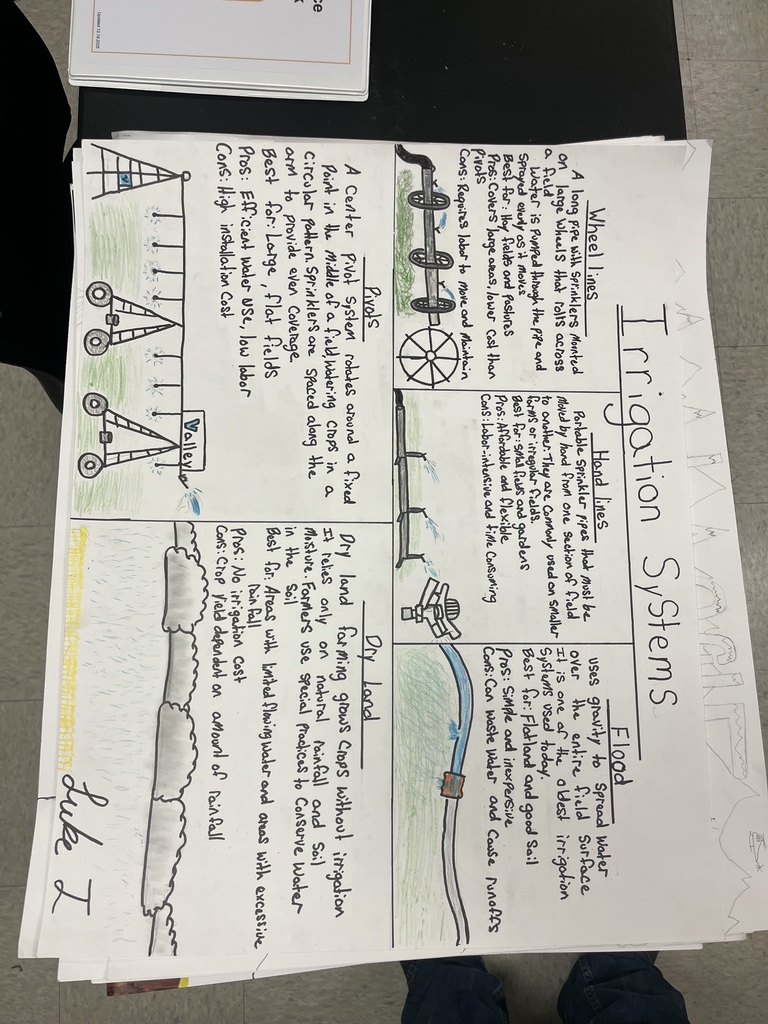 Irrigation Systems
Wheel lines
A long pipe with sprinklers mounted
on large wheels that rolls across
a field
Water is pumped through the pipe and
sprayed evenly as it moves
Best for: Hay fields and pastures
Pros: Covers large areas, lower cost than
Pivots
Cons: Requires labor to move and maintain
Hand lines
Portable sprinkler pipes that must be
moved by hand from one section of field
to another. They are commonly used on smaller
farms or irregular fields.
Best for: Small fields and gardens
Pros: Affordable and flexible
Cons: Labor-intensive and time consuming
Flood
uses gravity to spread water
over the entire field surface
It is one of the oldest irrigation
Systems used today.
Best for: Flat land and good Soil
Pros: Simple and inexpensive
Cons: Can waste water and cause runoffs
Pivots
A Center Pivot System rotates around a fixed
Point in the middle of a field watering crops in a
circular pattern sprinklers are spaced along the
arm to provide even coverage
Best for: Large, flat fields
Pros: Efficient water use, low labor
Cons: High installation cost
Valley
Dry Land
Dry land farming grows crops without irrigation
It relies only on natural rainfall and soil
moisture. Farmers use special practices to conserve water
in the soil
Best for: Areas with limited flowing water and areas with excessive
rainfall
Pros: No irrigation cost
Cons: Crop yield dependent on amount of rainfall
Luke I